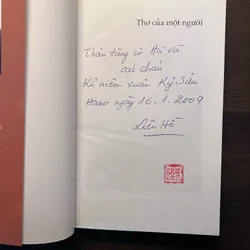 Thơ của một người
Thân tặng cô Hà và
các cháu
Kỉ niệm xuân Kỷ Sửu
Hanoi ngày 16.1.2009
Liên Hồ